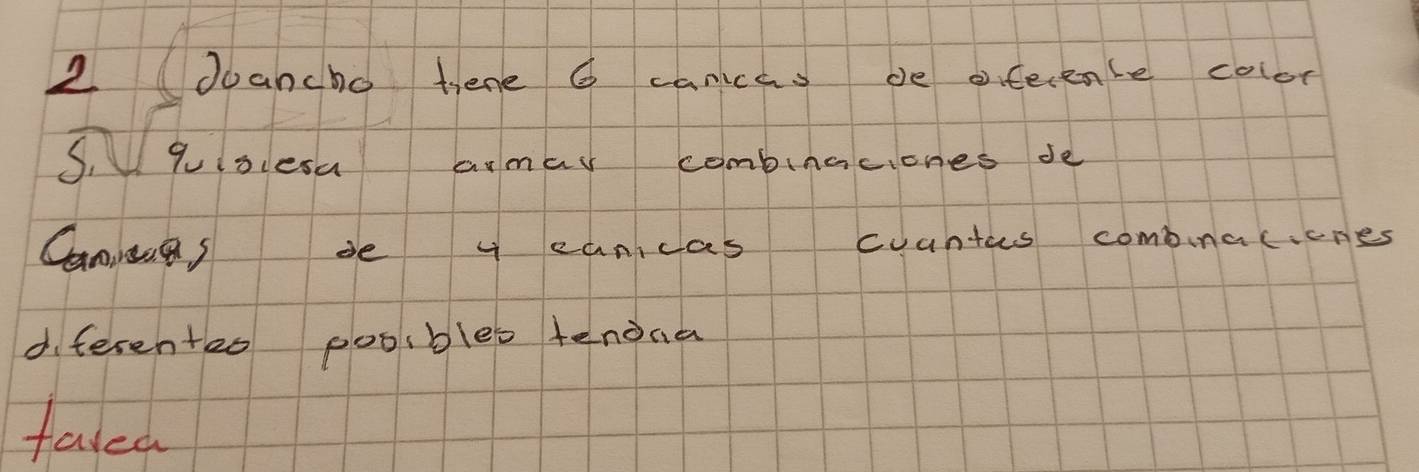 2 Juancho tiene 6 canicas de diferente color
Si quisiera armar combinaciones de
Canicas de 4 canicas cuantas combinaciones
diferentes posibles tendria
tarea